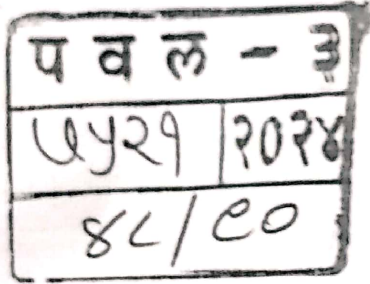 प व ल - ३
७५२१ | २०२४
४८/९०